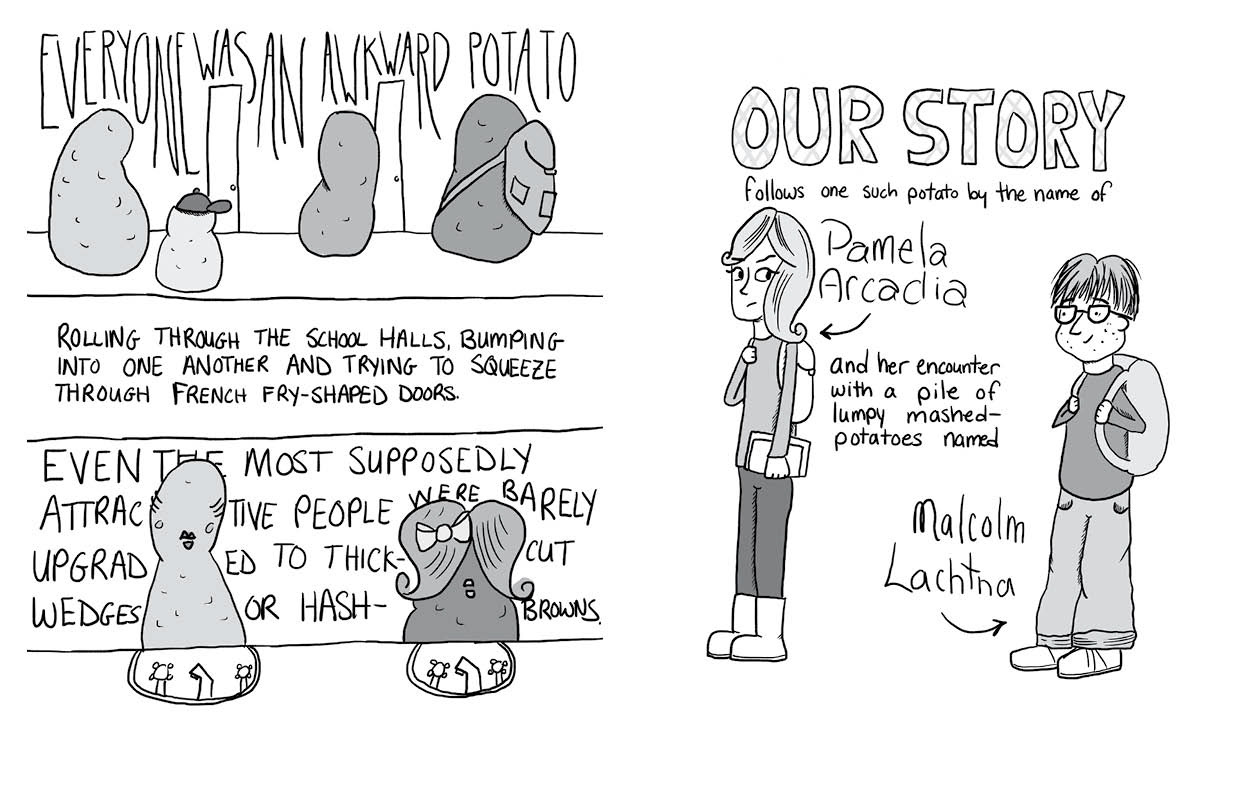 EVERYONE WAS AN AWKWARD POTATO
ROLLING THROUGH THE SCHOOL HALLS, BUMPING
INTO ONE ANOTHER AND TRYING TO SQUEEZE
THROUGH FRENCH FRY-SHAPED DOORS.
EVEN THE MOST SUPPOSEDLY
ATTRACTIVE PEOPLE WERE BARELY
UPGRADED TO THICK-CUT
WEDGES OR HASH-BROWNS.
OUR STORY
follows one such potato by the name of
Pamela
Arcadia
and her encounter
with a pile of
lumpy mashed-
potatoes named
Malcolm
Lachtna